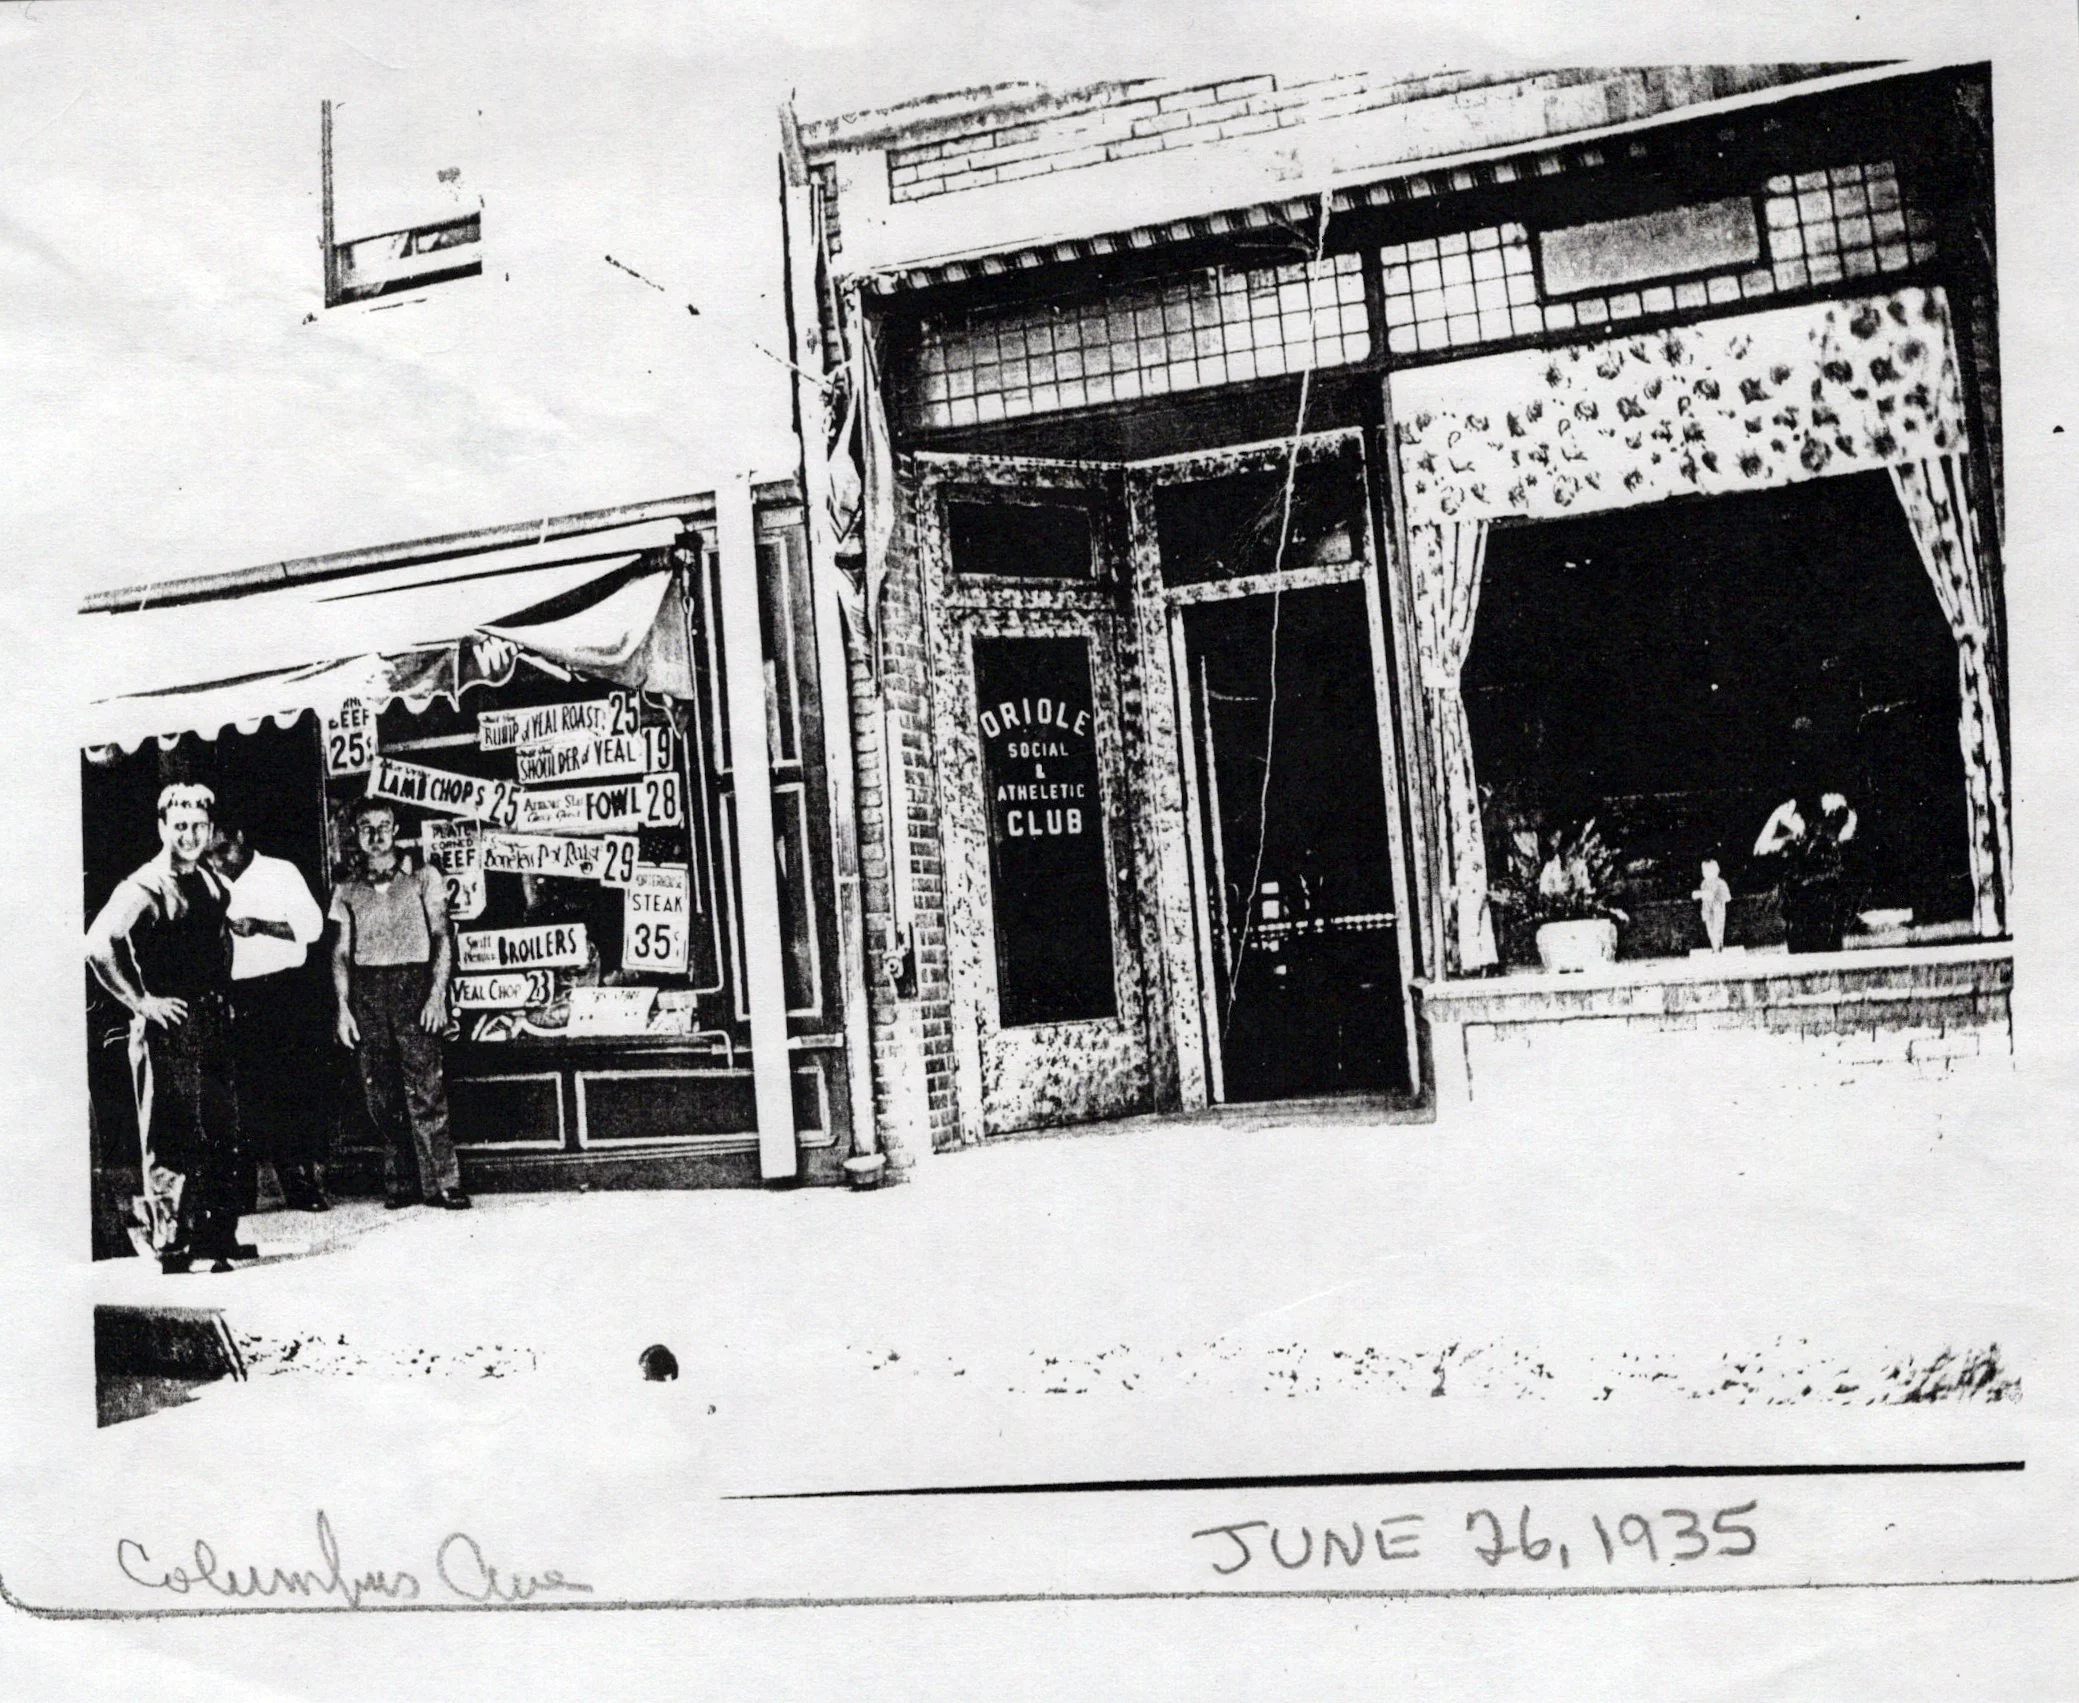 BEEF
25¢
RUMP of VEAL ROAST 25
SHOULDER of VEAL 19
LAMB CHOPS 25
FOWL 28
PLATE
CORNED
BEEF
Boneless Pot Roast 29
PORTERHOUSE
STEAK
35¢
Swift
BROILERS
VEAL CHOP 23
ORIOLE
SOCIAL
&
ATHELETIC
CLUB
Columbus Ave
JUNE 26, 1935